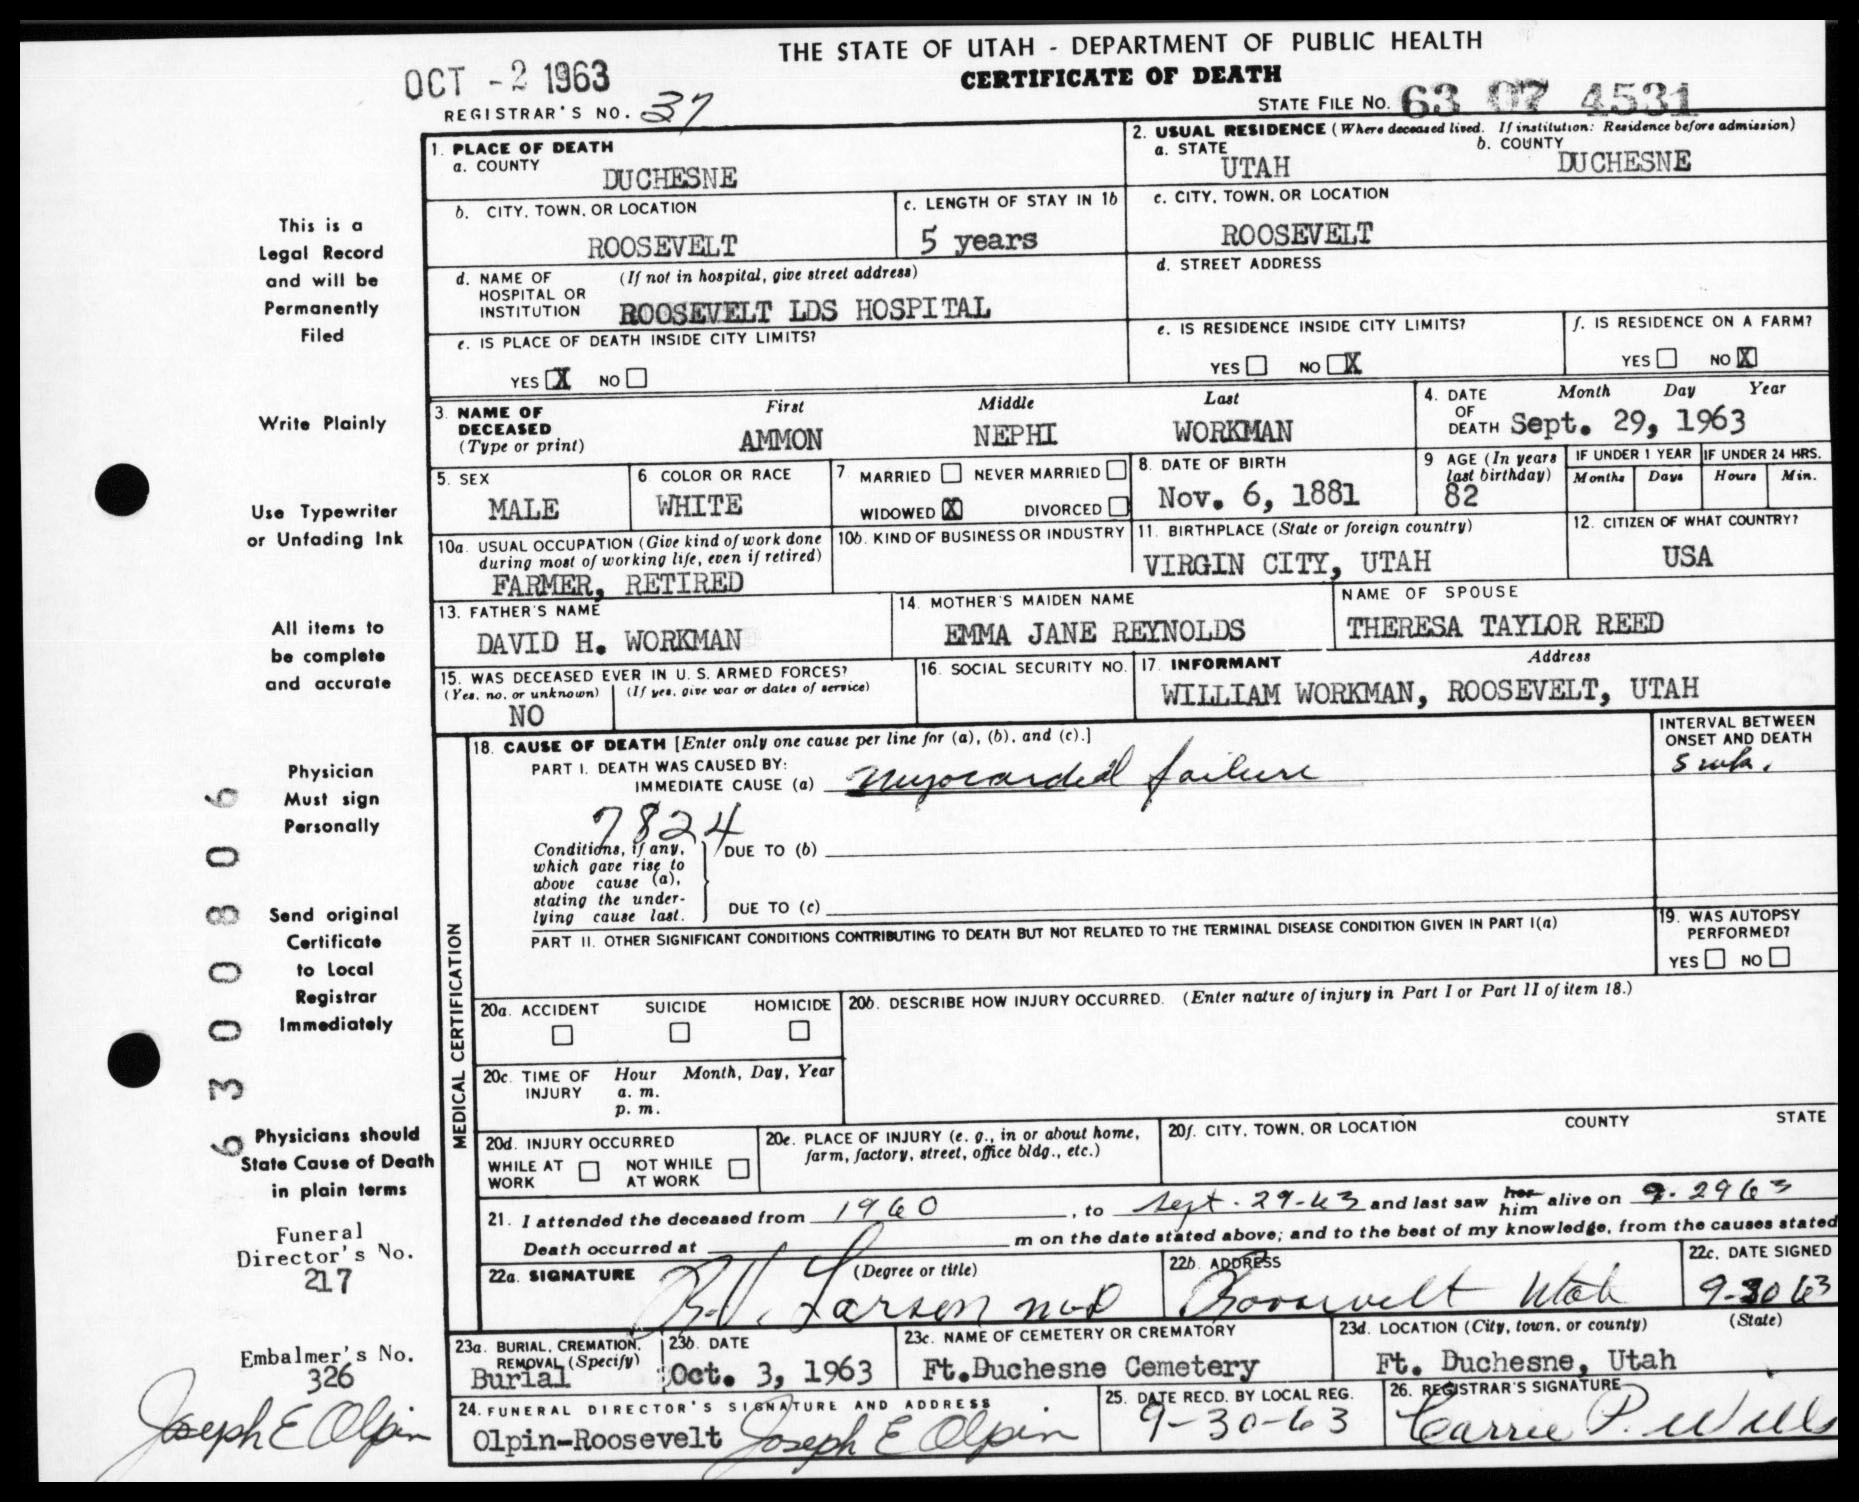 THE STATE OF UTAH - DEPARTMENT OF PUBLIC HEALTH
CERTIFICATE OF DEATH
OCT - 2 1963
REGISTRAR'S NO. 37
STATE FILE NO. 63 07 4531
This is a
Legal Record
and will be
Permanently
Filed
Write Plainly
Use Typewriter
or Unfading Ink
All items to
be complete
and accurate
Physician
Must sign
Personally
Send original
Certificate
to Local
Registrar
Immediately
Physicians should
State Cause of Death
in plain terms
Funeral
Director's No.
217
Embalmer's No.
326
Joseph E Olpin
6300806
1. PLACE OF DEATH
a. COUNTY
DUCHESNE
2. USUAL RESIDENCE (Where deceased lived. If institution: Residence before admission)
a. STATE b. COUNTY
UTAH DUCHESNE
b. CITY, TOWN, OR LOCATION
ROOSEVELT
c. LENGTH OF STAY IN 1b
5 years
c. CITY, TOWN, OR LOCATION
ROOSEVELT
d. NAME OF (If not in hospital, give street address)
HOSPITAL OR
INSTITUTION ROOSEVELT LDS HOSPITAL
d. STREET ADDRESS
e. IS PLACE OF DEATH INSIDE CITY LIMITS?
YES X NO
e. IS RESIDENCE INSIDE CITY LIMITS?
YES NO X
f. IS RESIDENCE ON A FARM?
YES NO X
3. NAME OF First Middle Last
DECEASED
(Type or print) AMMON NEPHI WORKMAN
4. DATE Month Day Year
OF
DEATH Sept. 29, 1963
5. SEX
MALE
6 COLOR OR RACE
WHITE
7 MARRIED NEVER MARRIED
WIDOWED X DIVORCED
8. DATE OF BIRTH
Nov. 6, 1881
9 AGE (In years
last birthday)
82
IF UNDER 1 YEAR IF UNDER 24 HRS.
Months Days Hours Min.
10a. USUAL OCCUPATION (Give kind of work done
during most of working life, even if retired)
FARMER, RETIRED
10b. KIND OF BUSINESS OR INDUSTRY
11. BIRTHPLACE (State or foreign country)
VIRGIN CITY, UTAH
12. CITIZEN OF WHAT COUNTRY?
USA
13. FATHER'S NAME
DAVID H. WORKMAN
14. MOTHER'S MAIDEN NAME
EMMA JANE REYNOLDS
NAME OF SPOUSE
THERESA TAYLOR REED
15. WAS DECEASED EVER IN U. S. ARMED FORCES?
(Yes, no, or unknown) (If yes, give war or dates of service)
NO
16. SOCIAL SECURITY NO.
17. INFORMANT Address
WILLIAM WORKMAN, ROOSEVELT, UTAH
MEDICAL CERTIFICATION
18. CAUSE OF DEATH [Enter only one cause per line for (a), (b), and (c).]
INTERVAL BETWEEN
ONSET AND DEATH
PART I. DEATH WAS CAUSED BY:
IMMEDIATE CAUSE (a) Myocardial failure
5 wks.
7824
Conditions, if any,
which gave rise to
above cause (a),
stating the under-
lying cause last.
DUE TO (b)
DUE TO (c)
PART II. OTHER SIGNIFICANT CONDITIONS CONTRIBUTING TO DEATH BUT NOT RELATED TO THE TERMINAL DISEASE CONDITION GIVEN IN PART I(a)
19. WAS AUTOPSY
PERFORMED?
YES NO
20a. ACCIDENT SUICIDE HOMICIDE
20b. DESCRIBE HOW INJURY OCCURRED. (Enter nature of injury in Part I or Part II of item 18.)
20c. TIME OF Hour Month, Day, Year
INJURY a. m.
p. m.
20d. INJURY OCCURRED
WHILE AT NOT WHILE
WORK AT WORK
20e. PLACE OF INJURY (e. g., in or about home,
farm, factory, street, office bldg., etc.)
20f. CITY, TOWN, OR LOCATION COUNTY STATE
21. I attended the deceased from 1960, to Sept. 29-63 and last saw her him alive on 9-29 63
Death occurred at m on the date stated above; and to the best of my knowledge, from the causes stated
22a. SIGNATURE (Degree or title)
R.V. Larsen MD
22b. ADDRESS
Roosevelt Utah
22c. DATE SIGNED
9-30 63
23a. BURIAL, CREMATION,
REMOVAL (Specify)
Burial
23b. DATE
Oct. 3, 1963
23c. NAME OF CEMETERY OR CREMATORY
Ft.Duchesne Cemetery
23d. LOCATION (City, town, or county) (State)
Ft. Duchesne, Utah
24. FUNERAL DIRECTOR'S SIGNATURE AND ADDRESS
Olpin-Roosevelt Joseph E Olpin
25. DATE RECD. BY LOCAL REG.
9-30-63
26. REGISTRAR'S SIGNATURE
Carrie P. Wills